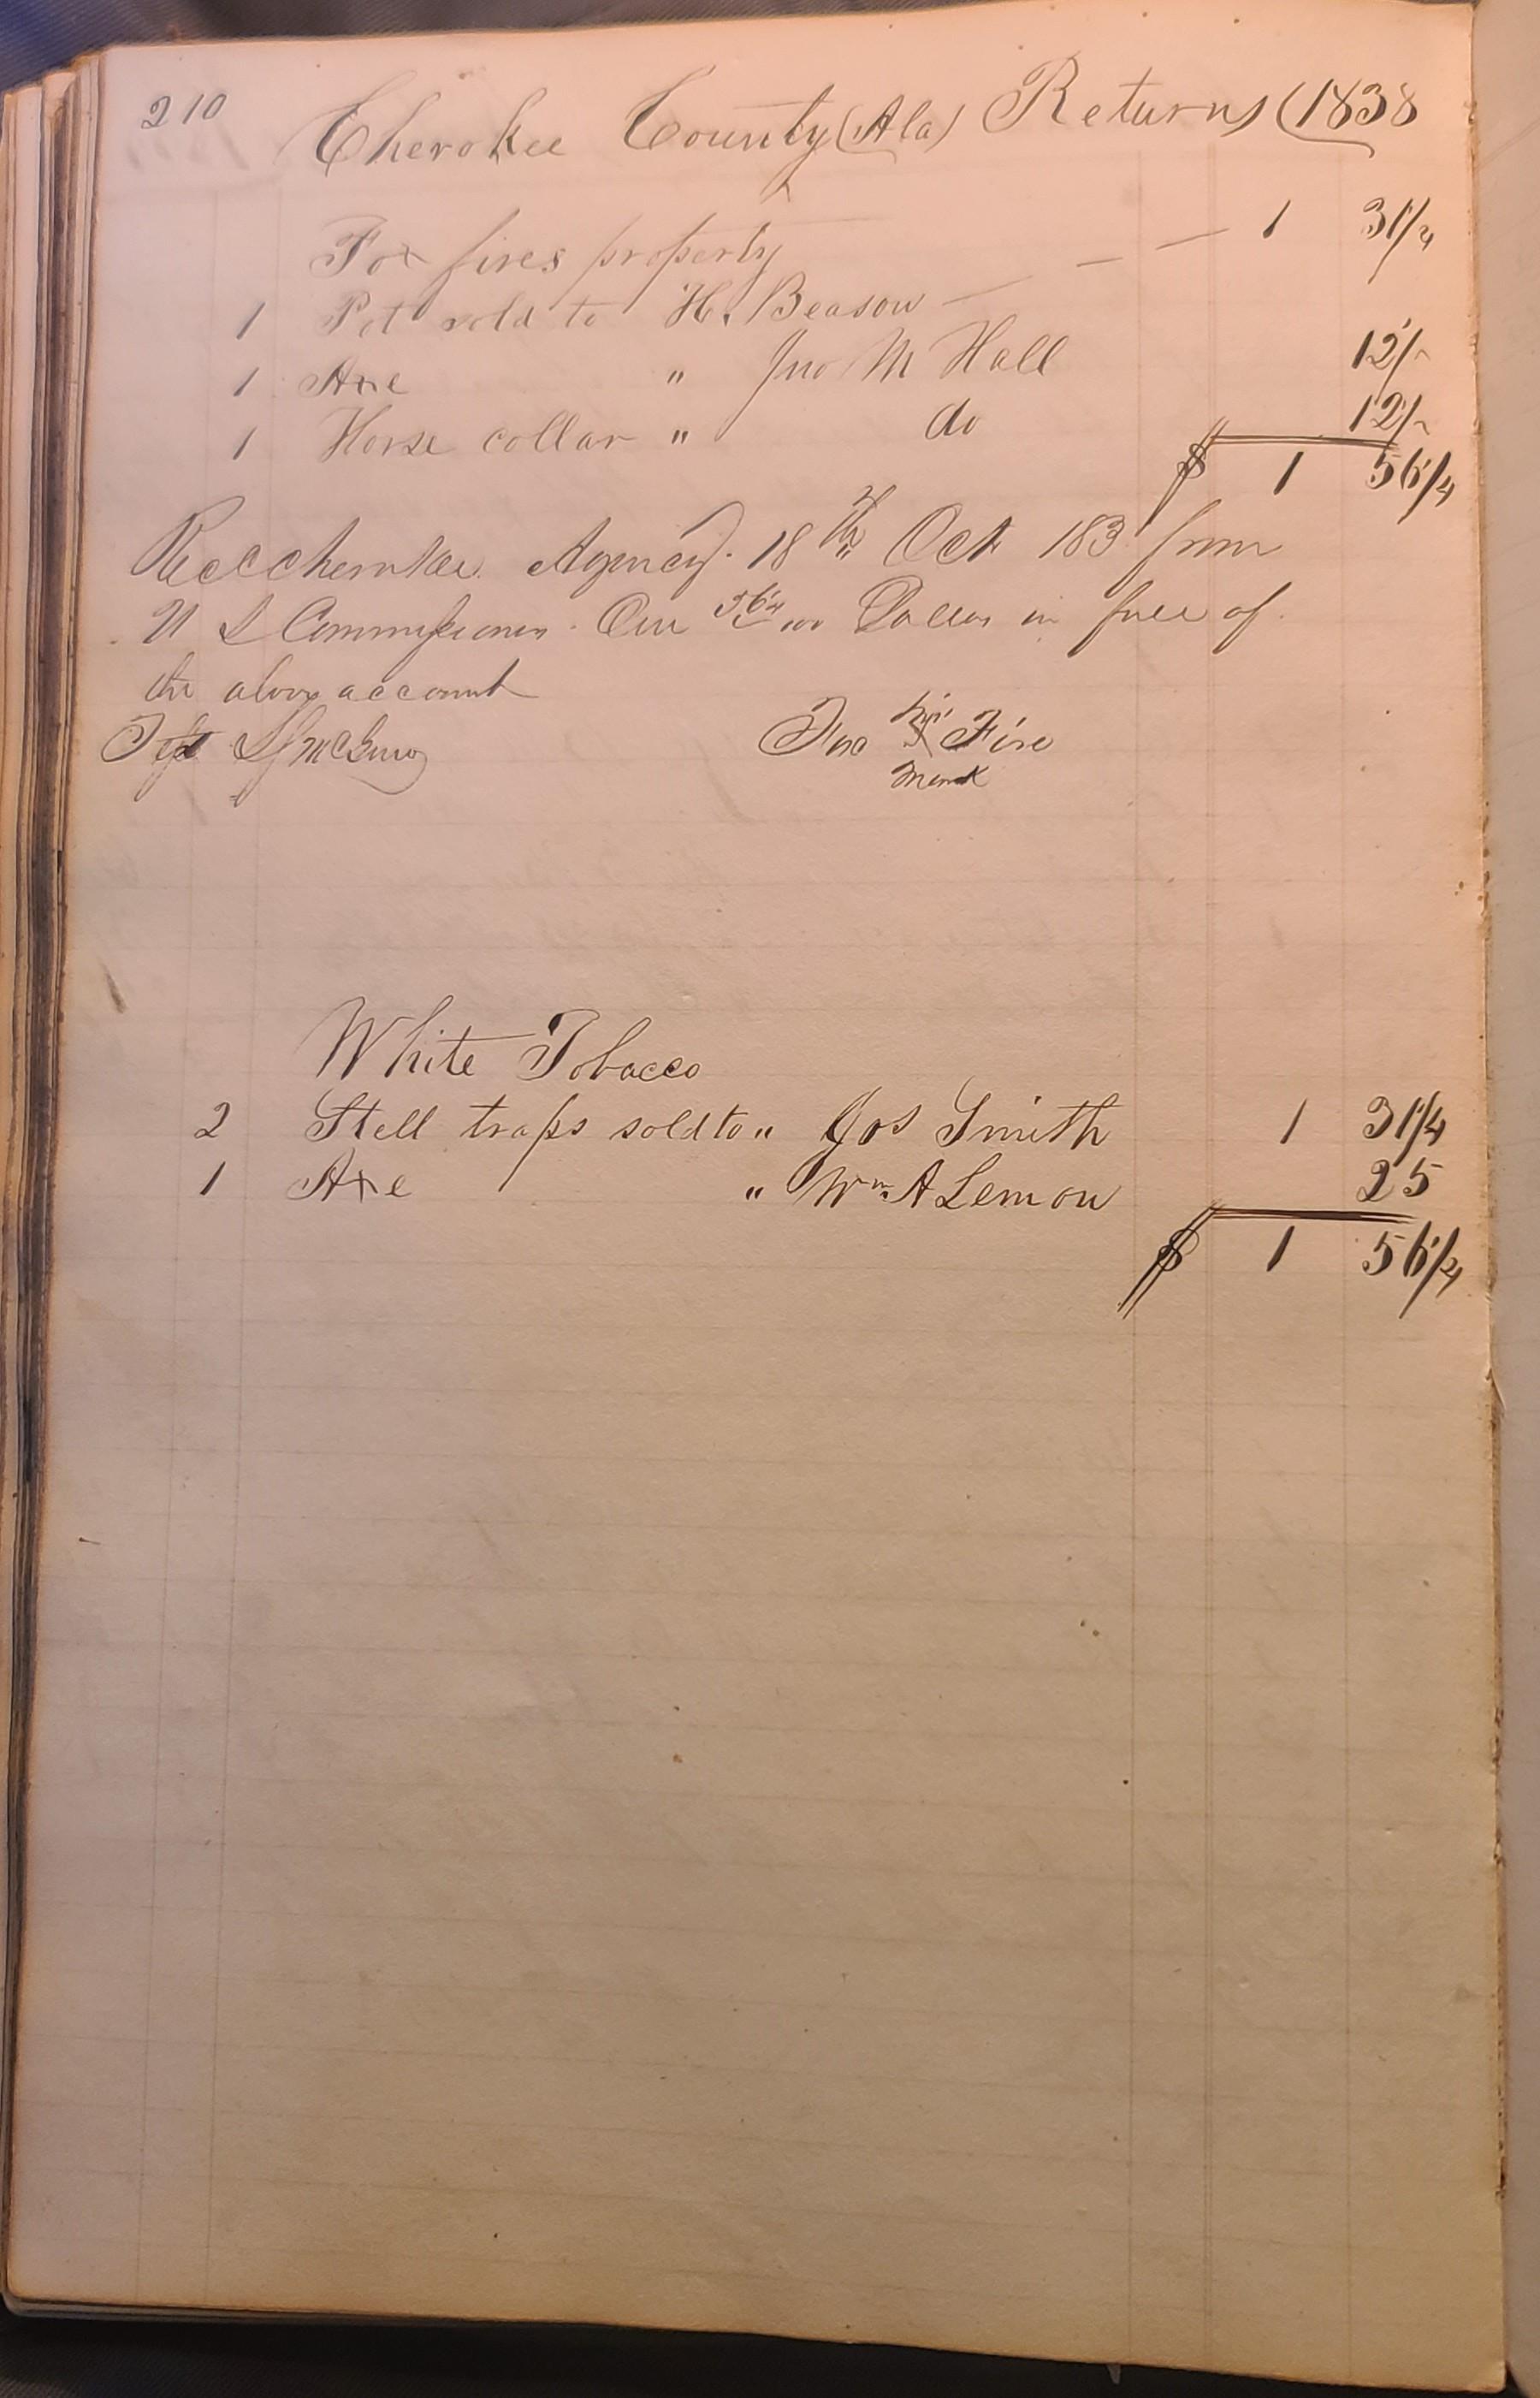 210
Cherokee County (Ala) Returns (1838
Fox fires property
1 Pot sold to H. Beason — — — 1 31 1/4
1 Axe " Jno M Hall 12 1/2
1 Horse collar " do 12 1/2
$ 1 56 1/4
Cherokee Agency 18th Oct 183 from
U S Commissioners One 56 1/4/100 Dollars in full of
the above account
his
Fox X Fire
mark
White Tobacco
2 Stell traps sold to " Jos Smith 1 31 1/4
1 Axe " Wm A Lemon 25
$ 1 56 1/4